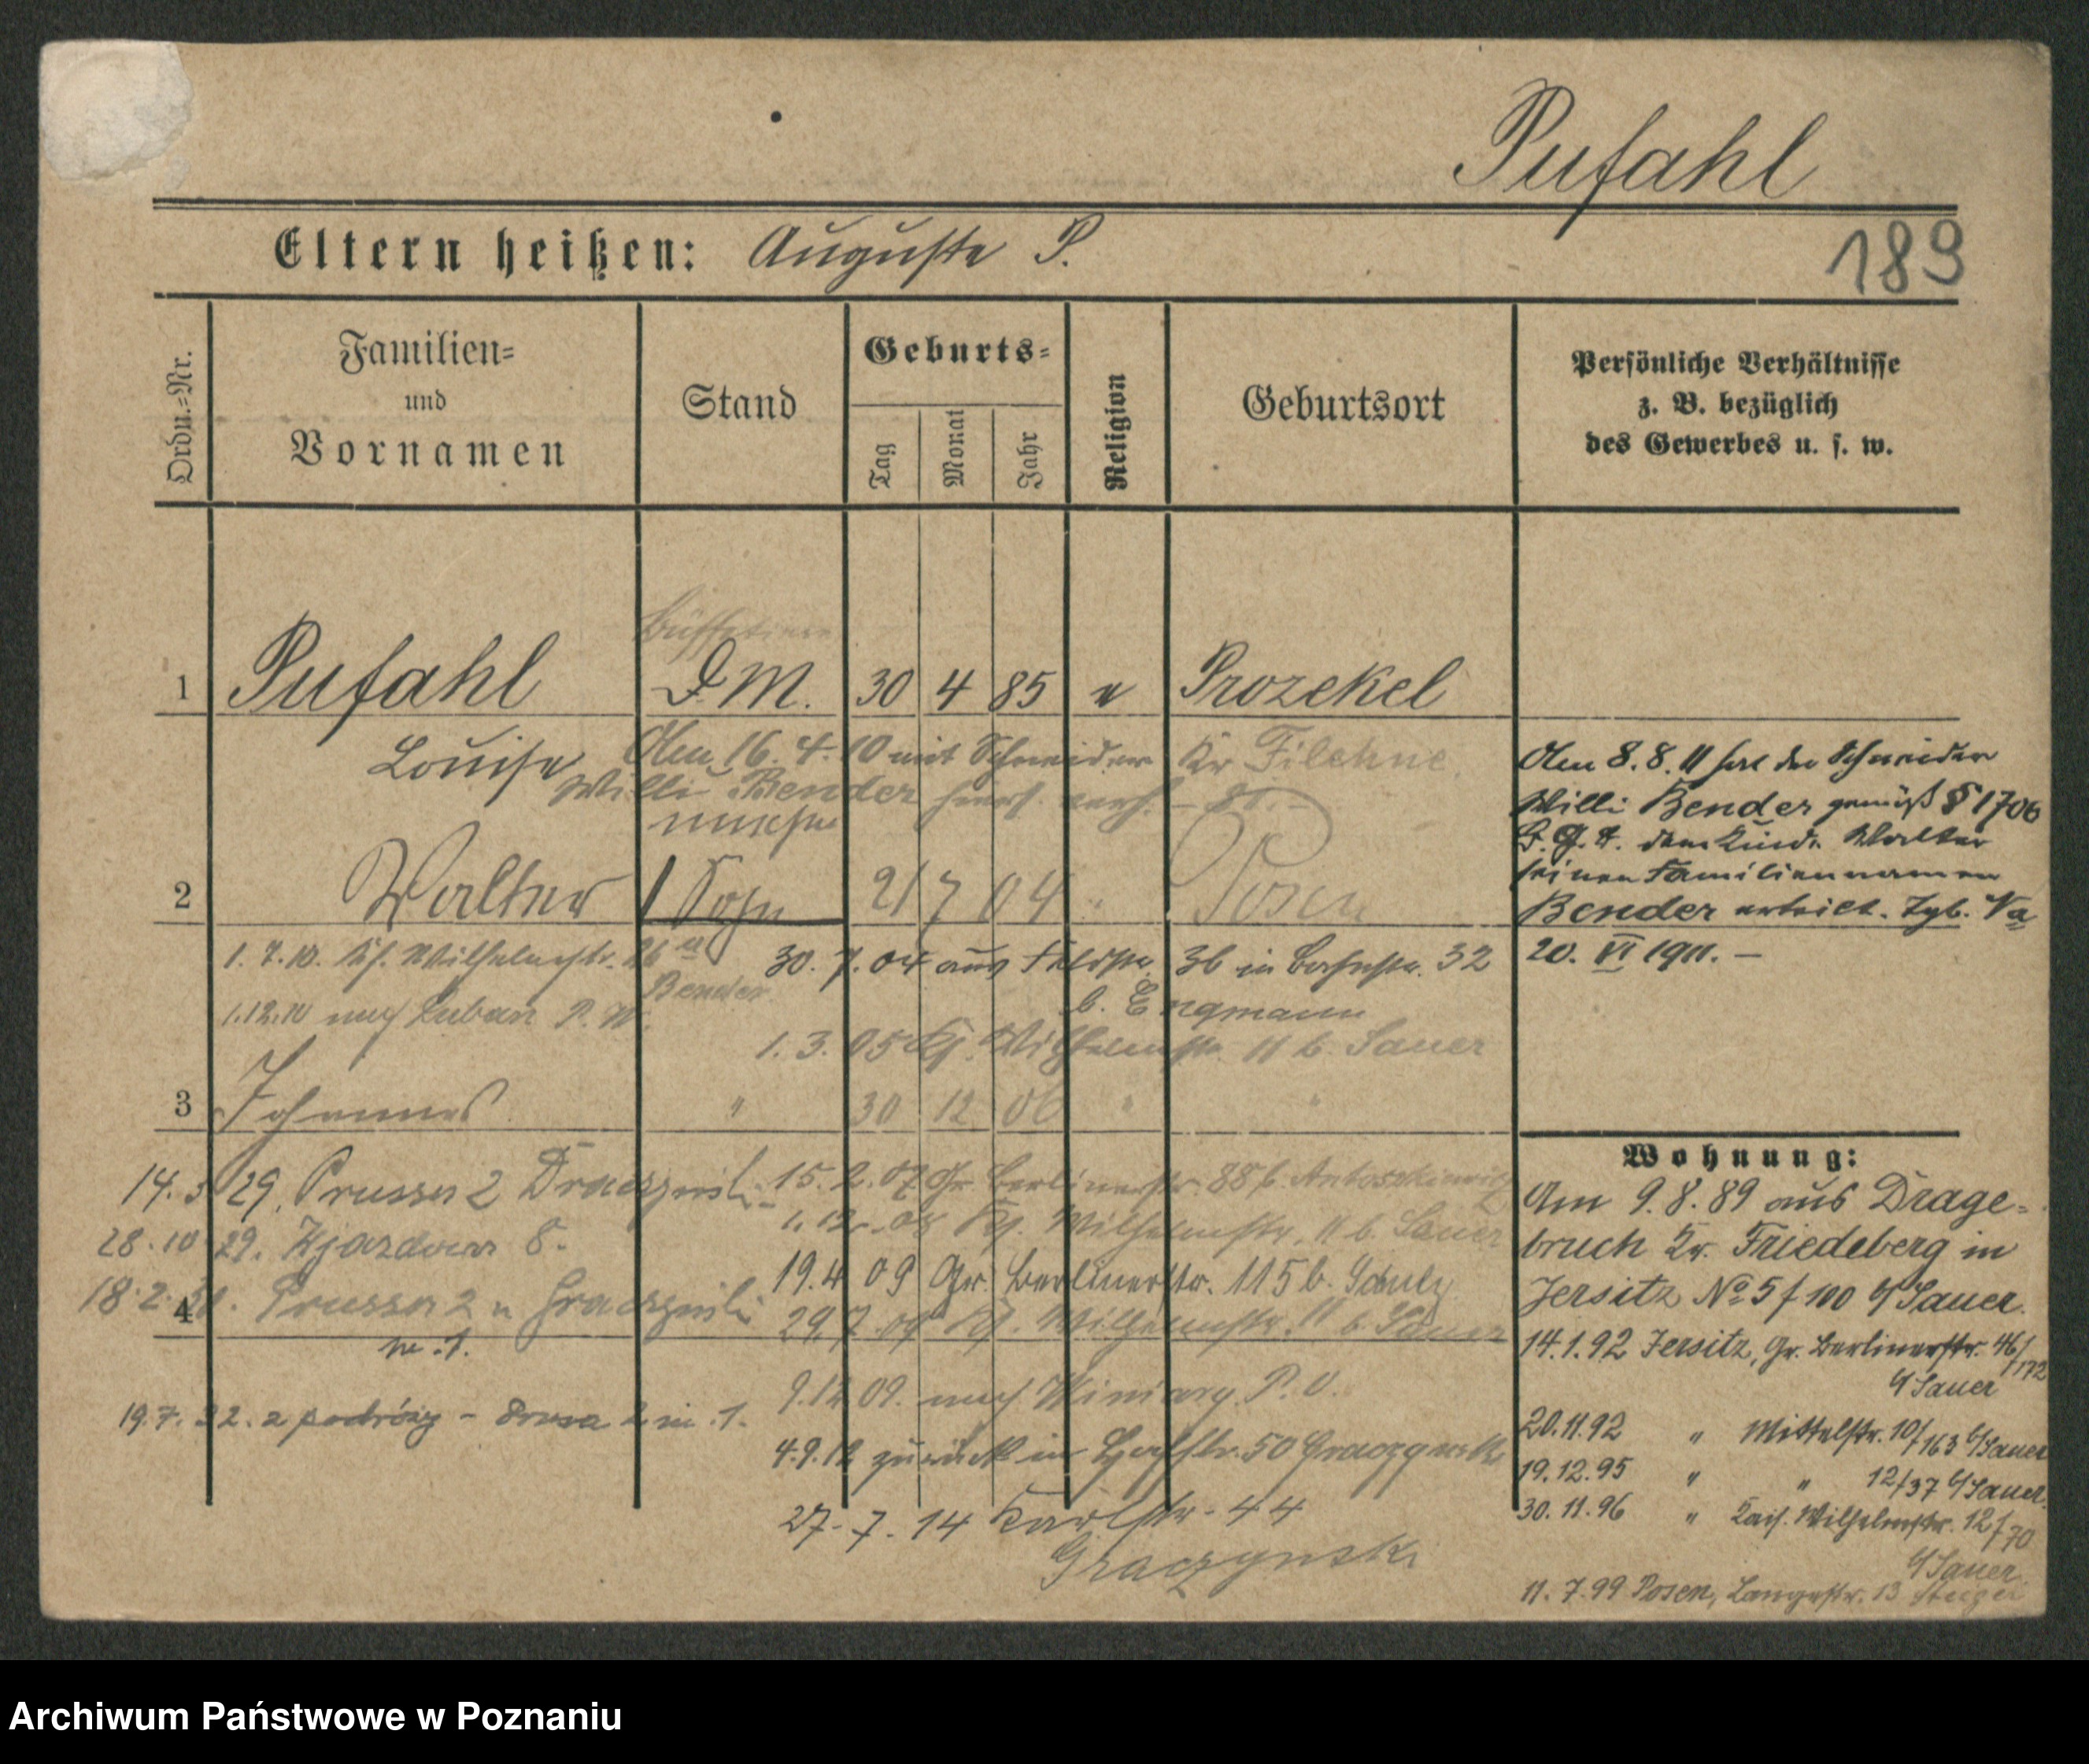 Pufahl
Eltern heißen: Auguste P.
189
Ordn.=Nr.
Familien=
und
Vornamen
Stand
Geburts=
Tag
Monat
Jahr
Religion
Geburtsort
Persönliche Verhältnisse
z. B. bezüglich
des Gewerbes u. s. w.
1 Pufahl D. M. 30 4 85 Prozekel
Louise
Am 16. 4. 10 mit Schneider
Kr Filehne
Willi Bender
2 Walter Sohn 21 7 04 " Posen
Am 8. 8. 11 hat der Schneider
Willi Bender gemäß § 1706
B. G. B. dem Kinde Walter
seinen Familiennamen
Bender erteilt. Tgb. Va
20. VI 1911. —
1. 7. 10. Ks. Wilhelmstr. 26
Bender
1.12.10 nach Luban P. W.
30. 7. 04 aus Feldstr. 36 in Bahnstr. 32
b. Engmann
1. 3. 05 Ks. Wilhelmstr. 11 b. Sauer
3 Johannes " 30 12 06 " "
14. 29. Prussa 2
28. 10 29. 8.
18. 2. Prussa 2
m. 1.
19. 7. 32. z podróży – Prusa 2 m. 1.
4
15. 2. 07 Gr. Berlinerstr. 88 b. Antoszkiewicz
1. 12. 08 Ks. Wilhelmstr. 11 b. Sauer
19. 4 09 Gr. Berlinerstr. 115 b. Schulz
29. 7. 09 Ks. Wilhelmstr. 11 b. Sauer
9.12 09. nach Winiary P. O.
4. 9. 12 zurück in 50 Graczynski
27. 7. 14 Karlstr. 44
Graczynski
Wohnung:
Am 9. 8. 89 aus Drage=
bruch Kr. Friedeberg in
Jersitz No 5 / 100 b/Sauer.
14. 1. 92 Jersitz, Gr. Berlinerstr. 46/172
b/Sauer
20. 11. 92 " Mittelstr. 10/163 b/Sauer
19. 12. 95 " " 12/37 b/Sauer.
30. 11. 96 " Kais. Wilhelmstr. 12/70
b/Sauer
11. 7. 99 Posen, Langestr. 13
Archiwum Państwowe w Poznaniu